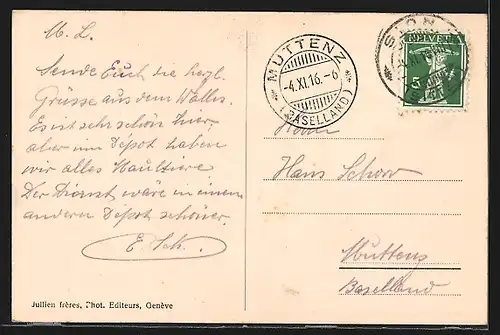 M. L.
Sende Euch die herzl.
Grüsse aus dem Wallis.
Es ist sehr schön hier,
aber im Dépot haben
wir alles Maultiere.
Der Dienst wäre in einem
anderen Dépot schöner.
E. Sch.
Jullien frères, Phot. Editeurs, Genève
MUTTENZ
-4.XI.16.-6
(BASELLAND)
SION
HELVETIA
5
Hans Schorr
Muttenz
Baselland